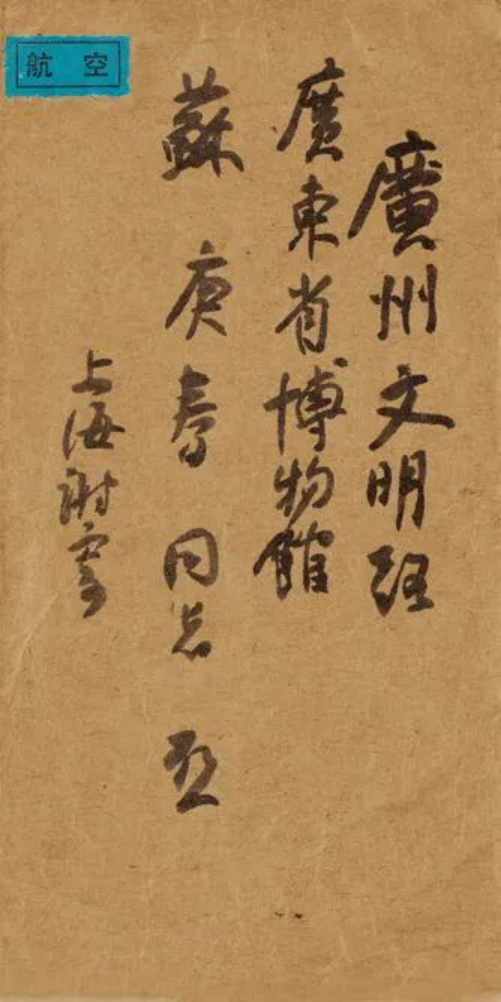 廣州文明路
廣東省博物館
蘇庚春同志
上海謝寄
航空